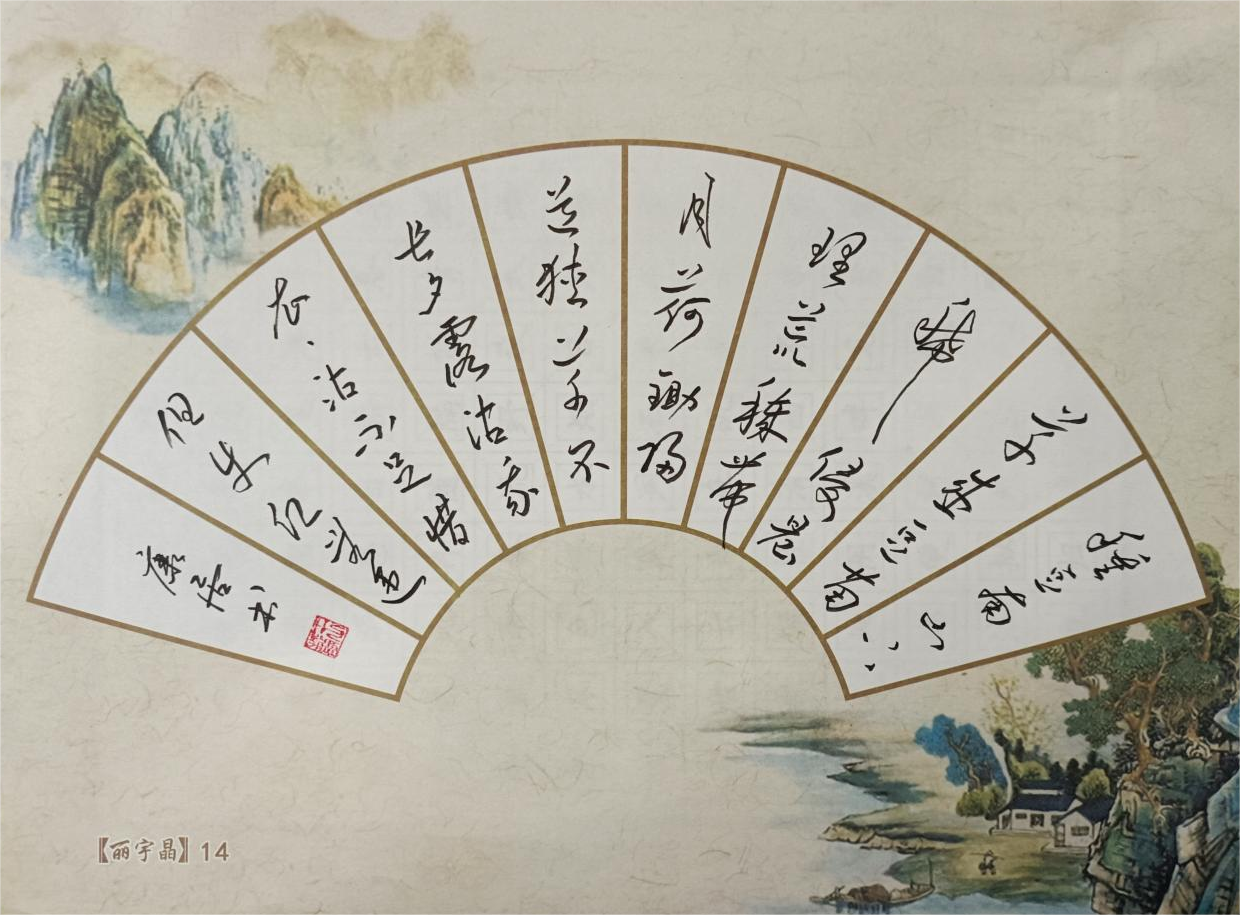 种豆南山下
草盛豆苗
稀侵晨
理荒秽带
月荷锄归
道狭草木
长夕露沾我
衣、沾不足惜
但使愿无违
康书
【丽宇晶】14